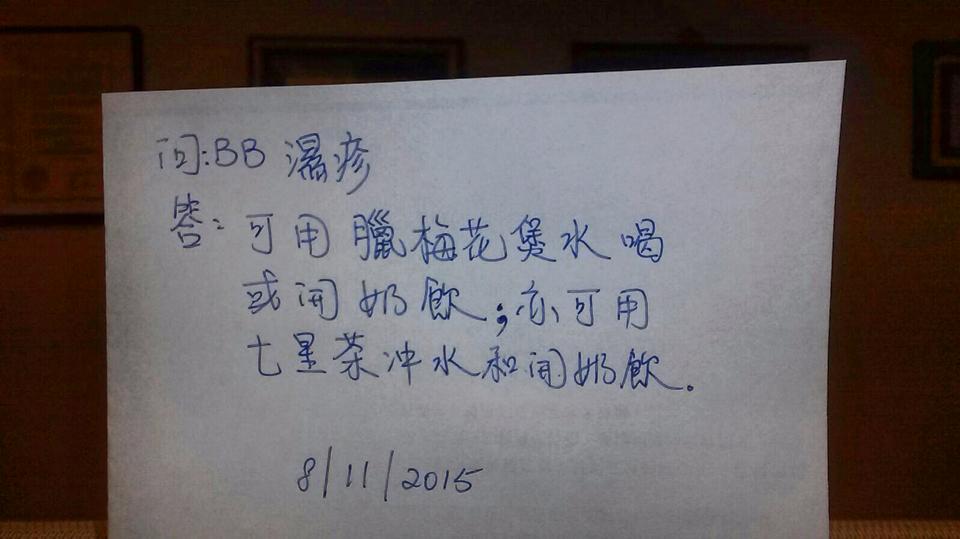 问:BB 濕疹
答:可用臘梅花煲水喝
或開奶飲;亦可用
七星茶冲水和開奶飲。
8/11/2015